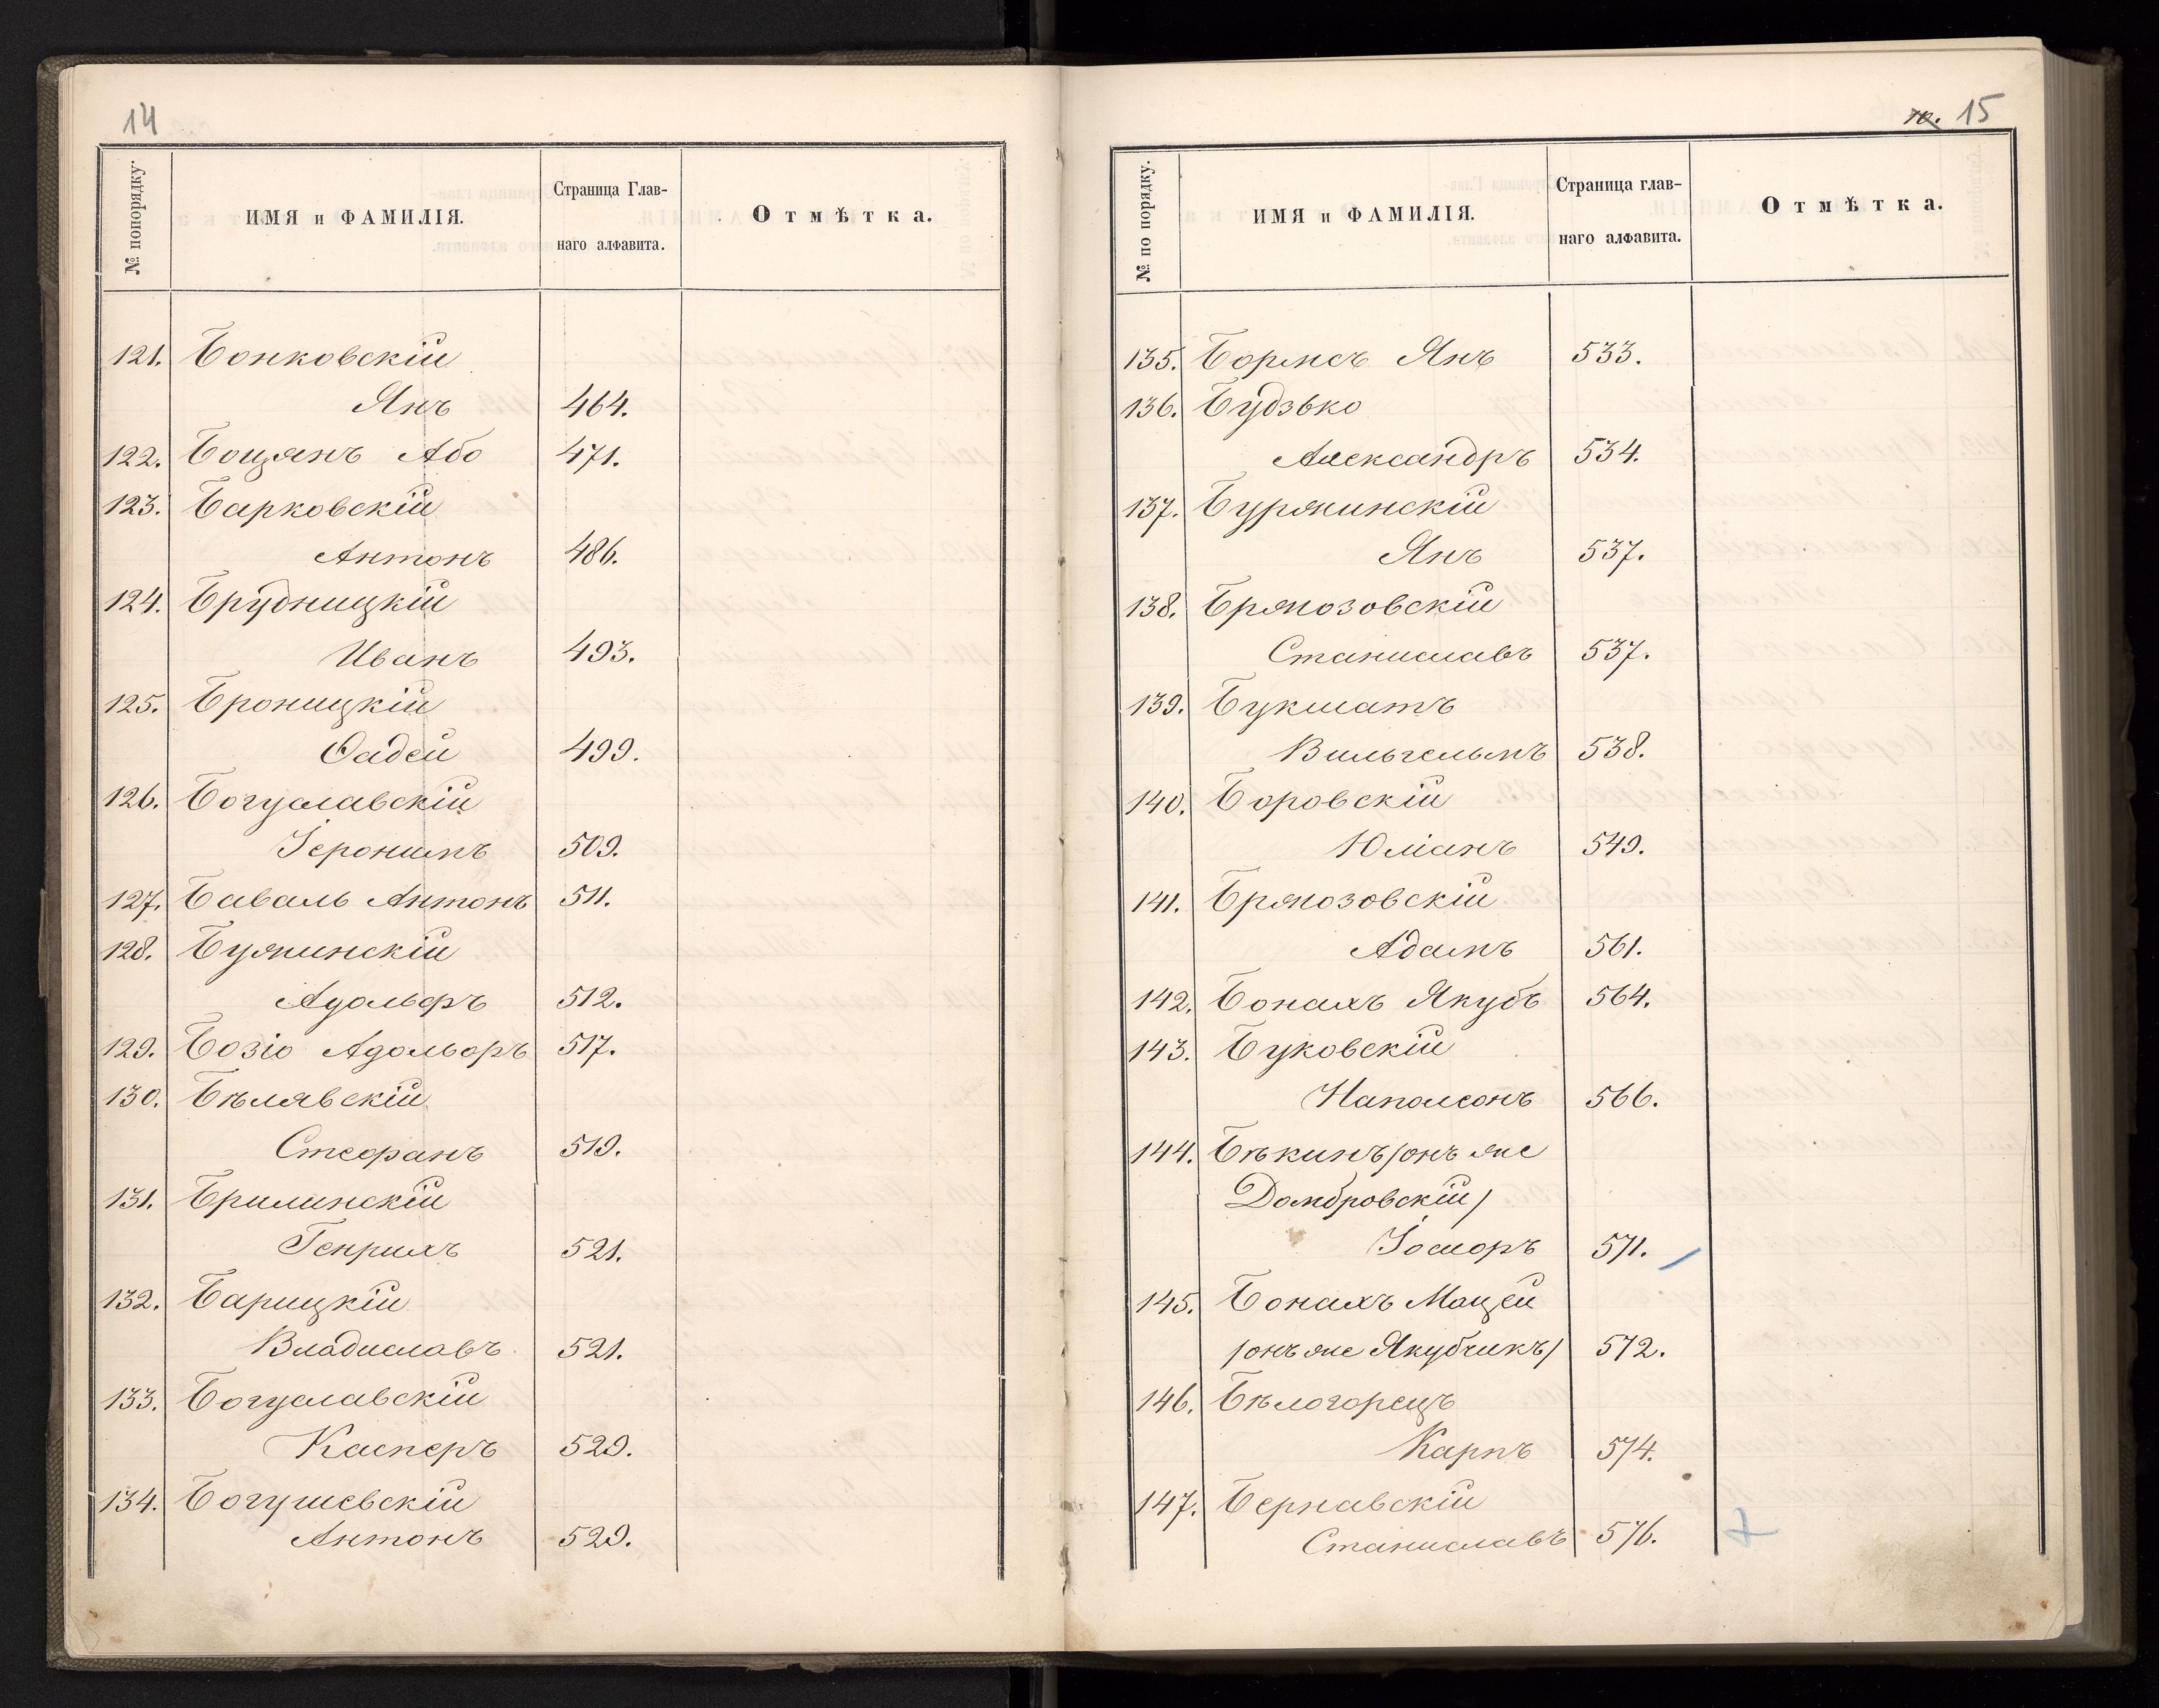 14
№ попорядку.
ИМЯ и ФАМИЛІЯ.
Страница Глав-
наго алфавита.
Отмѣтка.
121. Бонковскій
Янъ 464.
122. Боцянъ Або 471.
123. Барковскій
Антонъ 486.
124. Брудницкій
Иванъ 493.
125. Броницкій
Фадей 499.
126. Богуславскій
Іеронимъ 509.
127. Баваль Антонъ 511.
128. Бужинскій
Адольфъ 512.
129. Бозіо Адольфъ 517.
130. Бѣлявскій
Стефанъ 519.
131. Брилинскій
Генрихъ 521.
132. Барицкій
Владиславъ 521.
133. Богуславскій
Касперъ 529.
134. Богушевскій
Антонъ 529.
15
№ по порядку.
ИМЯ и ФАМИЛІЯ.
Страница глав-
наго алфавита.
Отмѣтка.
135. Бормсъ Янъ 533.
136. Будзько
Александръ 534.
137. Буржинскій
Янъ 537.
138. Бржозовскій
Станиславъ 537.
139. Букшатъ
Вильгельмъ 538.
140. Боровскій
Юліанъ 549.
141. Бржозовскій
Адамъ 561.
142. Бонахъ Якубъ 564.
143. Буковскій
Наполеонъ 566.
144. Бѣкинъ /онъ же
Домбровскій/
Іосифъ 571.
145. Бонахъ Мацей
/онъ же Якубчикъ/ 572.
146. Бѣлогорецъ
Карпъ 574.
147. Бернавскій
Станиславъ 576.